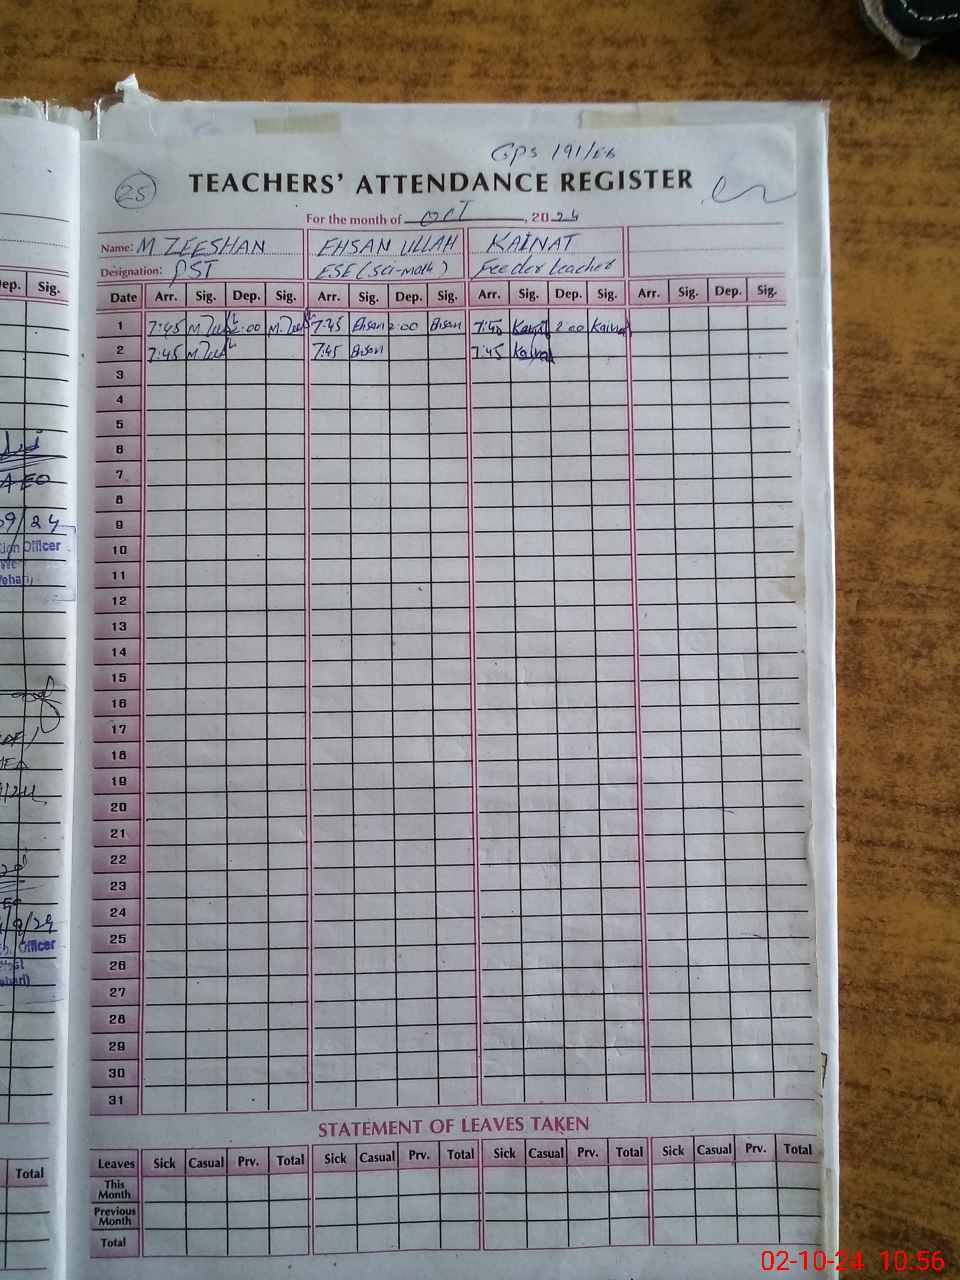 GPS 191/EB
25
TEACHERS' ATTENDANCE REGISTER
For the month of OCT, 2024
Name: M ZEESHAN EHSAN ULLAH KAINAT
Designation: PST ESE (sci-math) Feeder teacher
Date Arr. Sig. Dep. Sig. Arr. Sig. Dep. Sig. Arr. Sig. Dep. Sig. Arr. Sig. Dep. Sig.
1 7:45 2:00 7:45 Ehsan 2:00 Ehsan 7:45 Kainat 2:00 Kainat
2 7:45 7:45 Ehsan 7:45 Kainat
3
4
5
6
7
8
9
10
11
12
13
14
15
16
17
18
19
20
21
22
23
24
25
26
27
28
29
30
31
STATEMENT OF LEAVES TAKEN
Leaves Sick Casual Prv. Total Sick Casual Prv. Total Sick Casual Prv. Total Sick Casual Prv. Total
This
Month
Previous
Month
Total
ep. Sig.
AEO
09/24
tion Officer
Officer
Total
02-10-24 10:56